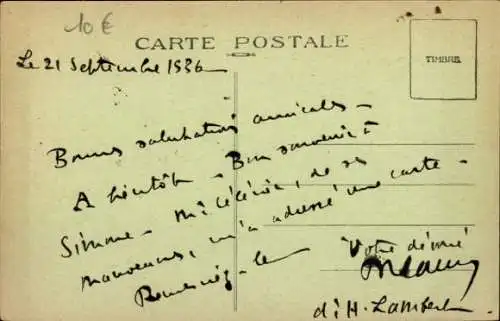 10 €
CARTE POSTALE
TIMBRE
Le 21 Septembre 1936
Bonnes salutations amicales –
A bientôt – Bon souvenir à
Simone – de
m'a adressé une carte –
Remerciez-le
Votre dévoué
d: H. Lambert